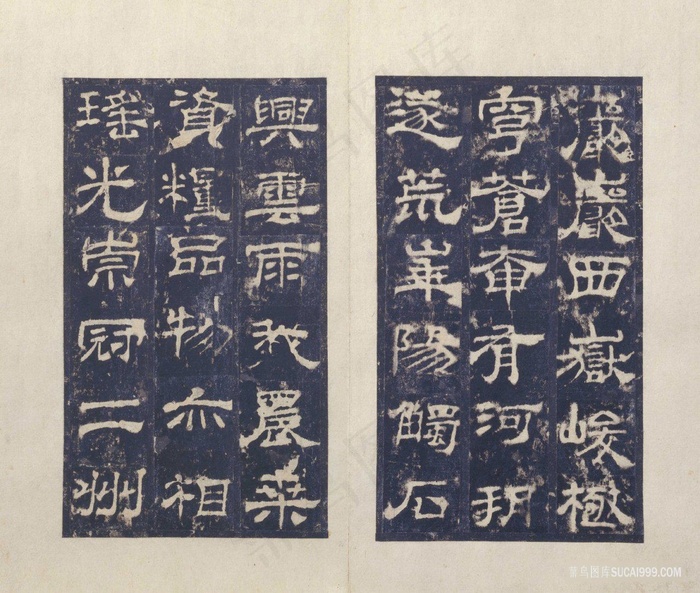 巖巖西嶽峻極
穹蒼奄有河朔
遂荒崋陽觸石
興雲雨我農桑
資糧品物亦相
瑤光崇冠二州
菜鸟图库SUCAI999.COM